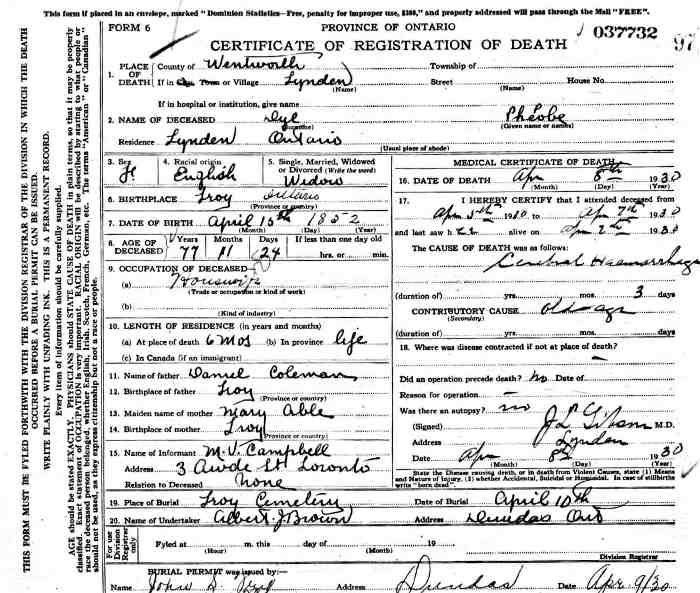 This form if placed in an envelope, marked "Dominion Statistics—Free, penalty for improper use, $300, and properly addressed will pass through the Mail "FREE".
FORM 6
PROVINCE OF ONTARIO
037732
97
CERTIFICATE OF REGISTRATION OF DEATH
1. PLACE OF DEATH
County of Wentworth Township of
If in City, Town or Village Lynden Street House No.
(Name) (Name)
If in hospital or institution, give name
2. NAME OF DECEASED Dye Phebe
(Surname) (Given name or names)
Residence Lynden Ontario
(Usual place of abode)
3. Sex F
4. Racial origin English
5. Single, Married, Widowed or Divorced (Write the word) Widow
6. BIRTHPLACE Troy Ontario
(Province or country)
7. DATE OF BIRTH April 15th 1852
8. AGE OF DECEASED
Years 77 Months 11 Days 24
If less than one day old
hrs. or min.
9. OCCUPATION OF DECEASED
(a) Housewife
(Trade or occupation or kind of work)
(b)
(Kind of industry)
10. LENGTH OF RESIDENCE (in years and months)
(a) At place of death 6 mos (b) In province life
(c) In Canada (if an immigrant)
11. Name of father Daniel Coleman
12. Birthplace of father Troy
(Province or country)
13. Maiden name of mother Mary Able
14. Birthplace of mother Troy
(Province or country)
15. Name of Informant M. V. Campbell
Address 3 St Toronto
Relation to Deceased None
MEDICAL CERTIFICATE OF DEATH
16. DATE OF DEATH Apr 8th 1930
(Month) (Day) (Year)
17. I HEREBY CERTIFY that I attended deceased from
Apr 5th 1930 to Apr 7th 1930
and last saw h er alive on Apr 1930
The CAUSE OF DEATH was as follows:
Cerebral Haemorrhage
(duration of) yrs. mos. 3 days
CONTRIBUTORY CAUSE Old age
(Secondary)
(duration of) yrs. mos. days
18. Where was disease contracted if not at place of death?
—
Did an operation precede death? No Date of
Reason for operation —
Was there an autopsy? no
(Signed) M.D.
Address Lynden
Date Apr 8th 1930
(Month) (Day) (Year)
State the Disease causing death, or in death from Violent Causes, state (1) Means and Nature of Injury, (2) whether Accidental, Suicidal or Homicidal. In case of stillbirths write "born dead".
19. Place of Burial Troy Cemetery Date of Burial April 10th
20. Name of Undertaker Albert J Brown Address Dundas Ont
For use of Division Registrar only
Fyled at m. this day of 19
(Hour) (Month) Division Registrar
BURIAL PERMIT was issued by:—
Name John S. Address Dundas Date Apr 9/30
THIS FORM MUST BE FYLED FORTHWITH WITH THE DIVISION REGISTRAR OF THE DIVISION IN WHICH THE DEATH
OCCURRED BEFORE A BURIAL PERMIT CAN BE ISSUED.
WRITE PLAINLY WITH UNFADING INK. THIS IS A PERMANENT RECORD.
Every item of information should be carefully supplied.
AGE should be stated EXACTLY. PHYSICIANS should STATE CAUSE OF DEATH in plain terms, so that it may be properly
classified. Exact statement of OCCUPATION is very important. RACIAL ORIGIN will be described by stating to what people or
race the deceased person belonged, whether English, Irish, Scotch, French, German, etc. The terms "American" or "Canadian"
should not be used, as they express citizenship but not a race or people.